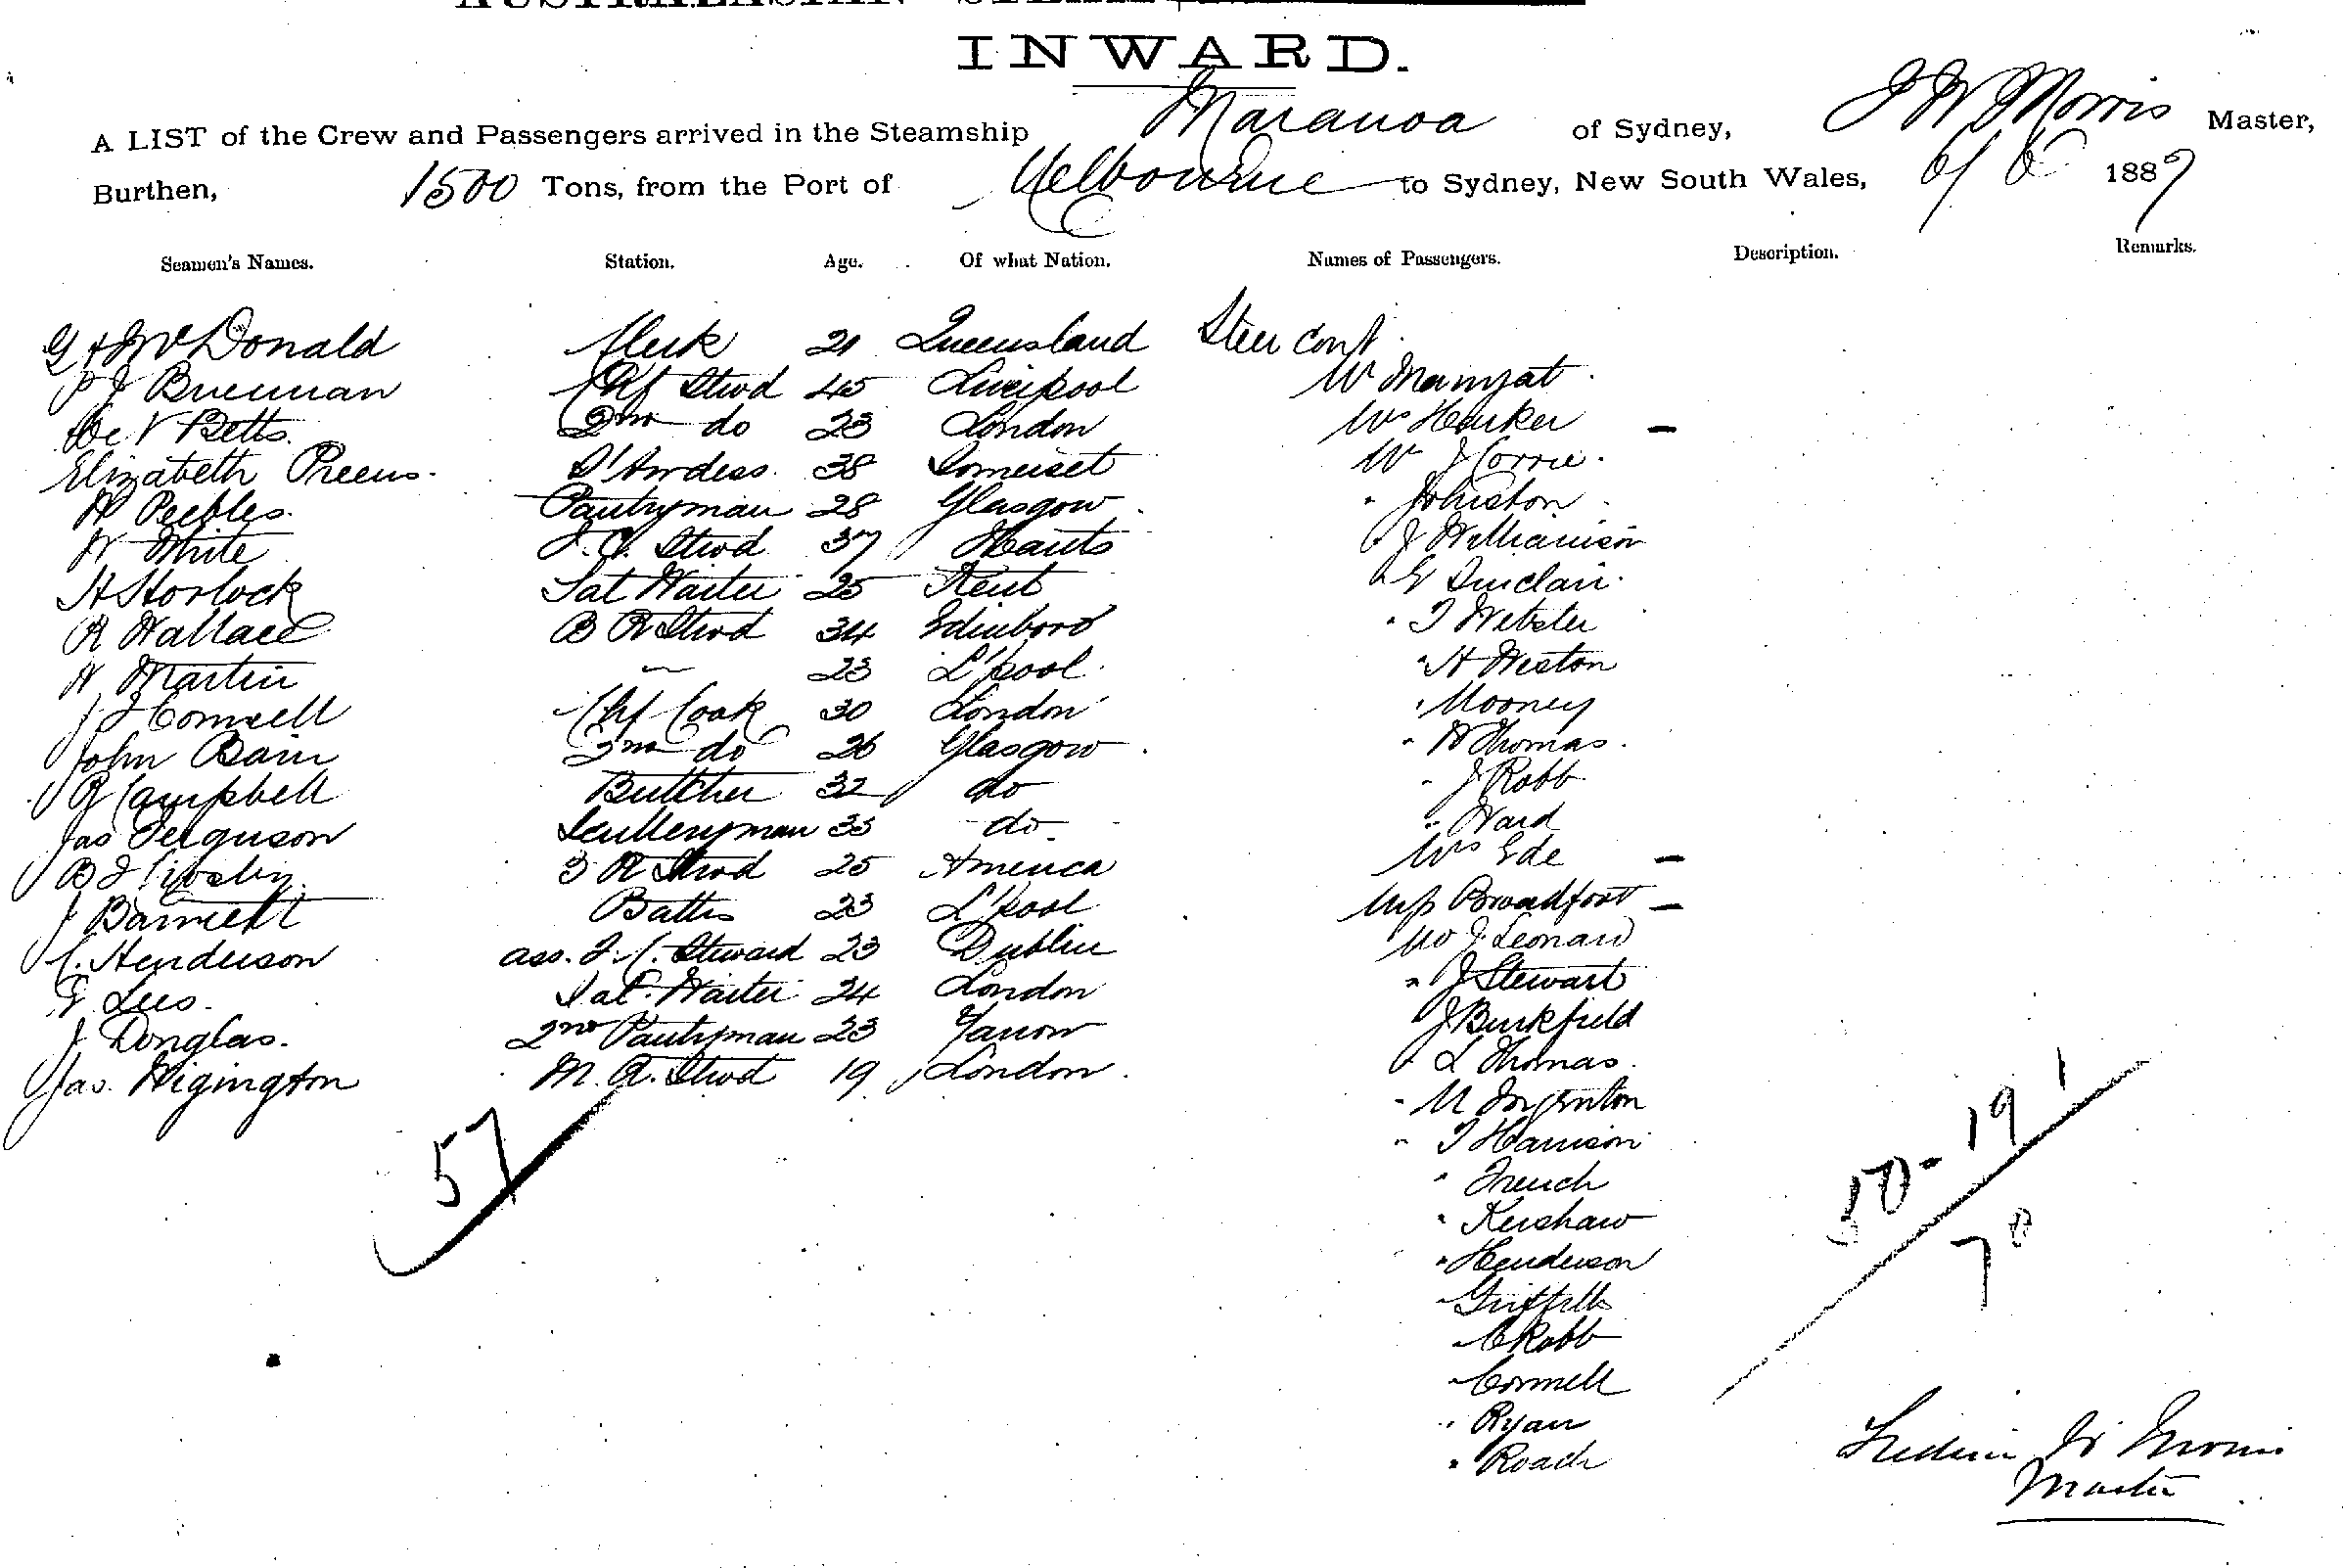 INWARD.
A LIST of the Crew and Passengers arrived in the Steamship Maranoa of Sydney, F W Morris Master,
Burthen, 1500 Tons, from the Port of Melbourne to Sydney, New South Wales, 6/6 1887
Seamen's Names. Station. Age. Of what Nation. Names of Passengers. Description. Remarks.
McDonald Clerk 21 Queensland Steer Cont
P J Brennan Chf Stwd 45 Liverpool Mr
V Betts. 2nd do 23 London Mrs Harker –
Elizabeth Preens. S'ardess. 38 Somerset Mr J Corrie.
Peebles. Pantryman 28 Glasgow " Johnston
W White F.C. Stwd 37 Hants " J Williamson
H Horlock Sal Waiter 25 Kent " Sinclair.
R Wallace B R Stwd 34 Edinboro " T Webster
W Martin " 23 L'pool " H Weston
J J Connell Chf Cook 30 London " Mooney
John Bain 2nd do 26 Glasgow " Thomas.
Campbell Butcher 32 do " J Robb
Jas Ferguson Sculleryman 33 do " Ward
B J Stwd 25 America Mrs Ede –
J Barnett 23 L'pool Miss Broadfoot –
C. Henderson ass. F. C. Steward 23 Dublin Mr J. Leonard
Lees. Sal. Waiter 24 London " J Stewart
J Douglas. 2nd Pantryman 23 J Burkfield
Jas. Wigington M. R. Stwd 19 London " L Thomas.
" M
57 " T Harrison
" French
" Kershaw
50 - 19 1
" Henderson
70
" Griffiths
" C Robb
" Connell
" Ryan
" Roach
W Morris
Master